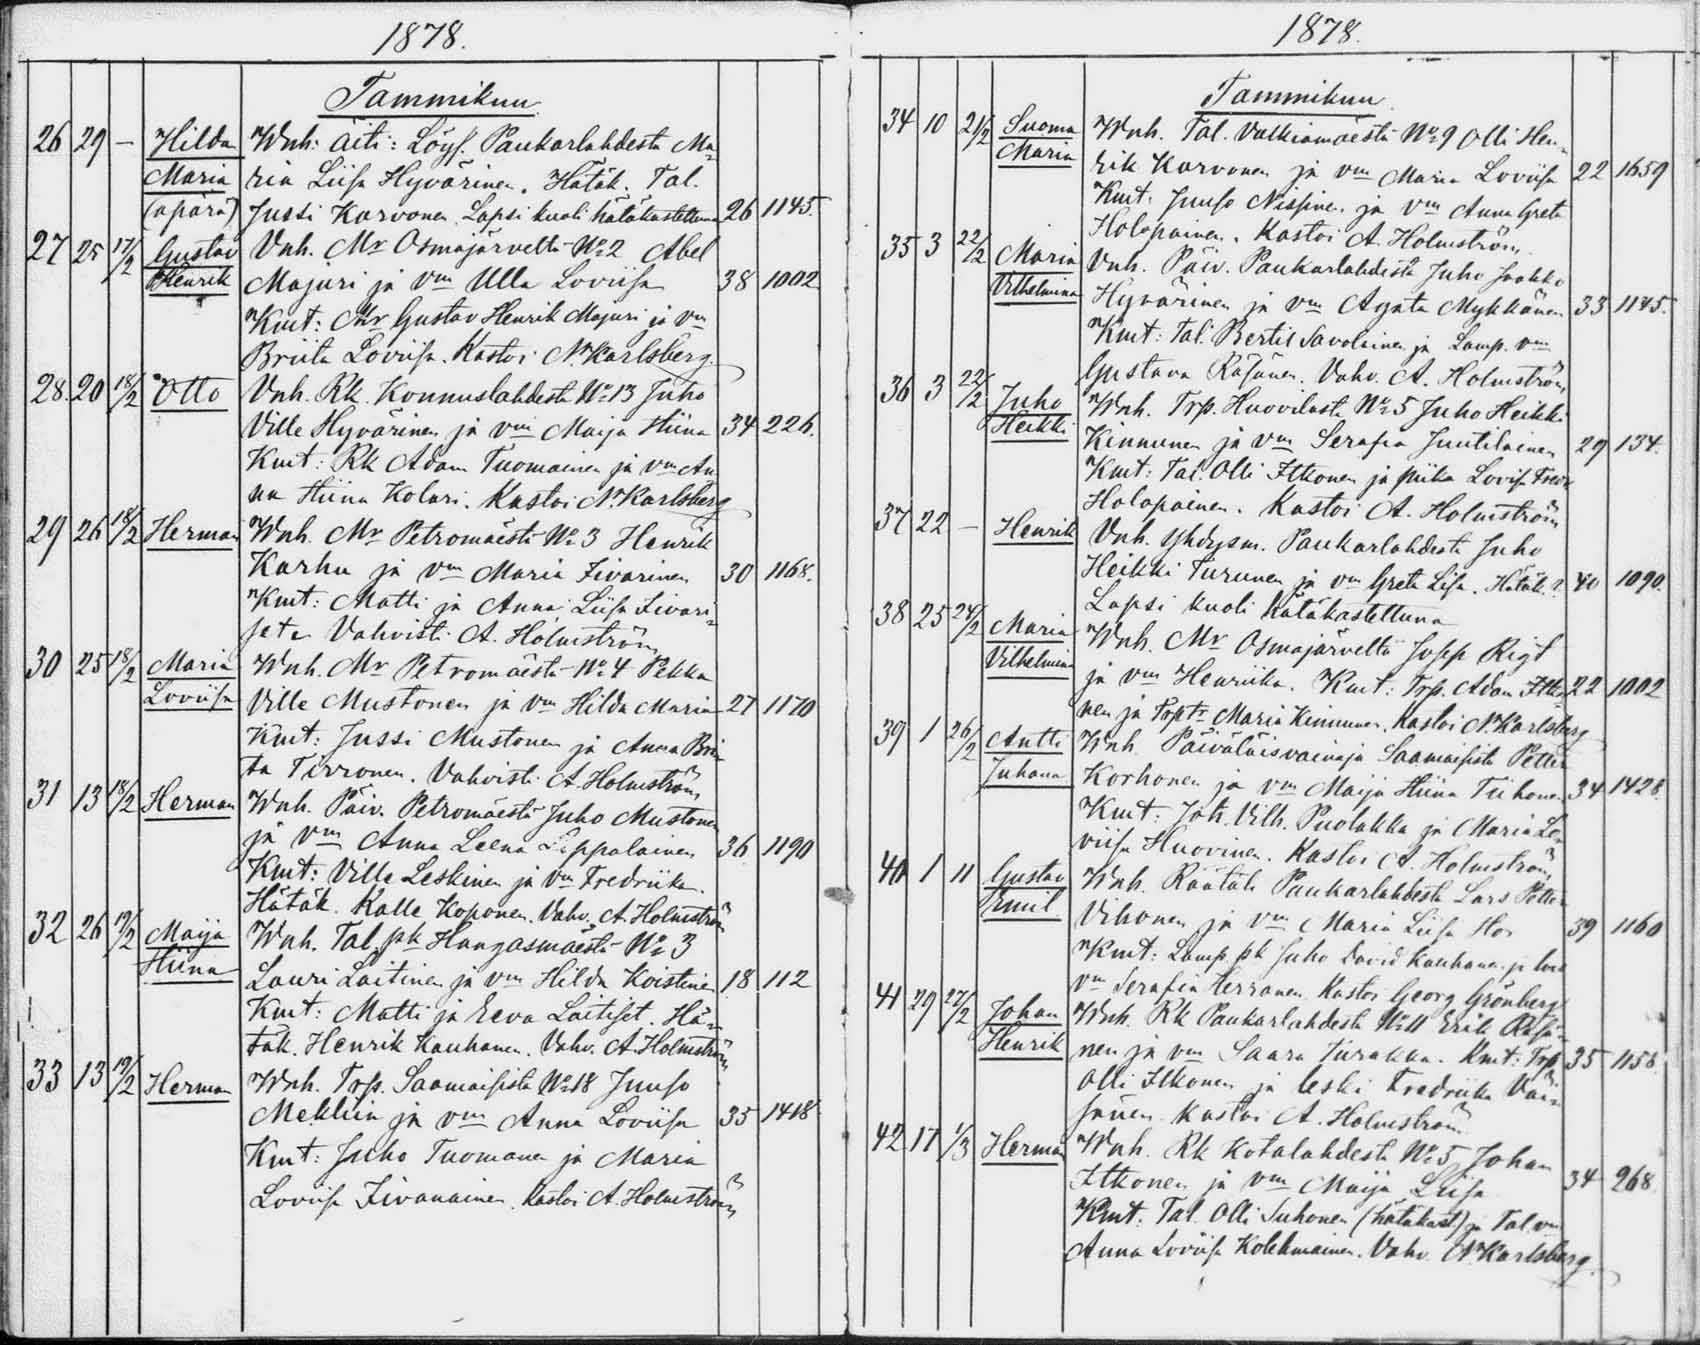 1878.
Tammikuu
26 29 – Hilda Wnh. äiti: Löys. Paukarlahdesta Ma=
Maria ria Liisa Hyvärinen. Hätäk. Tal.
(äpärä) Jussi Karvonen. Lapsi kuoli hätäkastettuna 26 1145.
27 25 17/2 Gustav Vnh. Mr Osmajärveltä No 2 Abel
Henrik Majuri ja vm Ulla Loviisa 38 1002
Kmt: Mr Gustav Henrik Majuri ja vm
Briita Loviisa. Kastoi N. Karlsberg.
28. 20 18/2 Otto Vnh. Rk. Konnuslahdesta No 13 Juho
Ville Hyvärinen ja vm Maija Stiina 34 226.
Kmt: Rk Adam Tuomainen ja vm An
na Stiina Kolari. Kastoi N. Karlsberg
29 26 18/2 Herman Wnh. Mr Petromäestä No 3 Henrik
Karhu ja vm Maria Iivarinen 30 1168.
Kmt: Matti ja Anna Liisa Iivari=
set. Vahvisti A. Holmström
30 25 18/2 Maria Wnh. Mr Petromäestä No 4 Pekka
Loviisa Ville Mustonen ja vm Hilda Maria 27 1170
Kmt: Jussi Mustonen ja Anna Brii
ta Tirronen. Vahvisti A. Holmström
31 13 18/2 Herman Wnh. Päiv. Petromäestä Juho Mustonen
ja vm Anna Leena Lappalainen 36 1190
Kmt: Ville Leskinen ja vm Fredriika.
Hätäk. Kalle Koponen. Vahv. A. Holmström
32 26 19/2 Maija Wnh. Tal. pk Hangasmäestä No 3
Stiina Lauri Laitinen ja vm Hilda Koistinen 18 112
Kmt: Matti ja Eeva Laitiset. Hä=
täk. Henrik Kauhanen. Vahv. A. Holmström
33 13 19/2 Herman Wnh. Trp. Saamaisista No 18 Juuso
Meklin ja vm Anna Loviisa 35 1418
Kmt: Juho Tuomanen ja Maria
Loviisa Iivanainen. Kastoi A. Holmström
1878.
Tammikuu
34 10 21/2 Suoma Wnh. Tal. Valkiamäestä No 9 Olli Hen=
Maria rik Karvonen ja vm Maria Loviisa 22 1659
Kmt. Juuso Nissine. ja vm Anna Greta
Holopainen. Kastoi A. Holmström
35 3 22/2 Maria Vnh. Päiv. Paukarlahdesta Juho Jaakko
Vilhelmina Hyvärinen ja vm Agata Mykkänen 33 1145.
Kmt: Tal. Bertil Savolainen ja Lamp. vm
Gustava Räsänen. Vahv. A. Holmström
36 3 22/2 Juho Wnh. Trp. Huovilasta No 5 Juho Heikki
Heikki Kinnunen ja vm Serafia Juutilainen 29 134.
Kmt: Tal. Olli Itkonen ja piika Lovisa
Holopainen. Kastoi A. Holmström
37 22 – Henrik Vnh. yhdysm. Paukarlahdesta Juho
Heikki Turunen ja vm Greta Lisa. Hätäk:? 40 1090.
Lapsi kuoli hätäkastettuna
38 25 24/2 Maria Wnh. Mr Osmajärveltä Josep Rigt
Vilhelmina ja vm Henriika. Kmt: Trp. Adam Itko 22 1002
nen ja Maria Kinnunen. Kastoi N. Karlsberg
39 1 26/2 Antti Wnh. Päiväläisvainaja Saamaisista Petter
Juhana Korhonen ja vm Maija Stiina Tiihonen 34 1428.
Kmt: Joh. Vilh. Puolakka ja Maria Lo
viisa Huovinen. Kastoi A. Holmström
40 1 11 Gustav Wnh. Räätäli Paukarlahdesta Lars Petter
Emil Vihonen ja vm Maria Liisa 39 1160
Kmt: Lamp. pk Juho David Kauhanen ja
vm Serafia Terranen. Kastoi Georg Grönberg
41 29 27/2 Johan Wnh. Rk Paukarlahdesta No 11 Erik Räsä=
Henrik nen ja vm Saara Turakka. Kmt: Trp. 35 1158.
Olli Itkonen ja leski Fredriika Väi=
sänen. Kastoi A. Holmström
42 17 1/3 Herman Wnh. Rk Kotalahdesta No 5 Johan
Itkonen ja vm Maija Leisa 34 268.
Kmt. Tal. Olli Suhonen (hätäkast) ja Tal. vm
Anna Loviisa Kolehmainen. Vahv. N. Karlsberg.